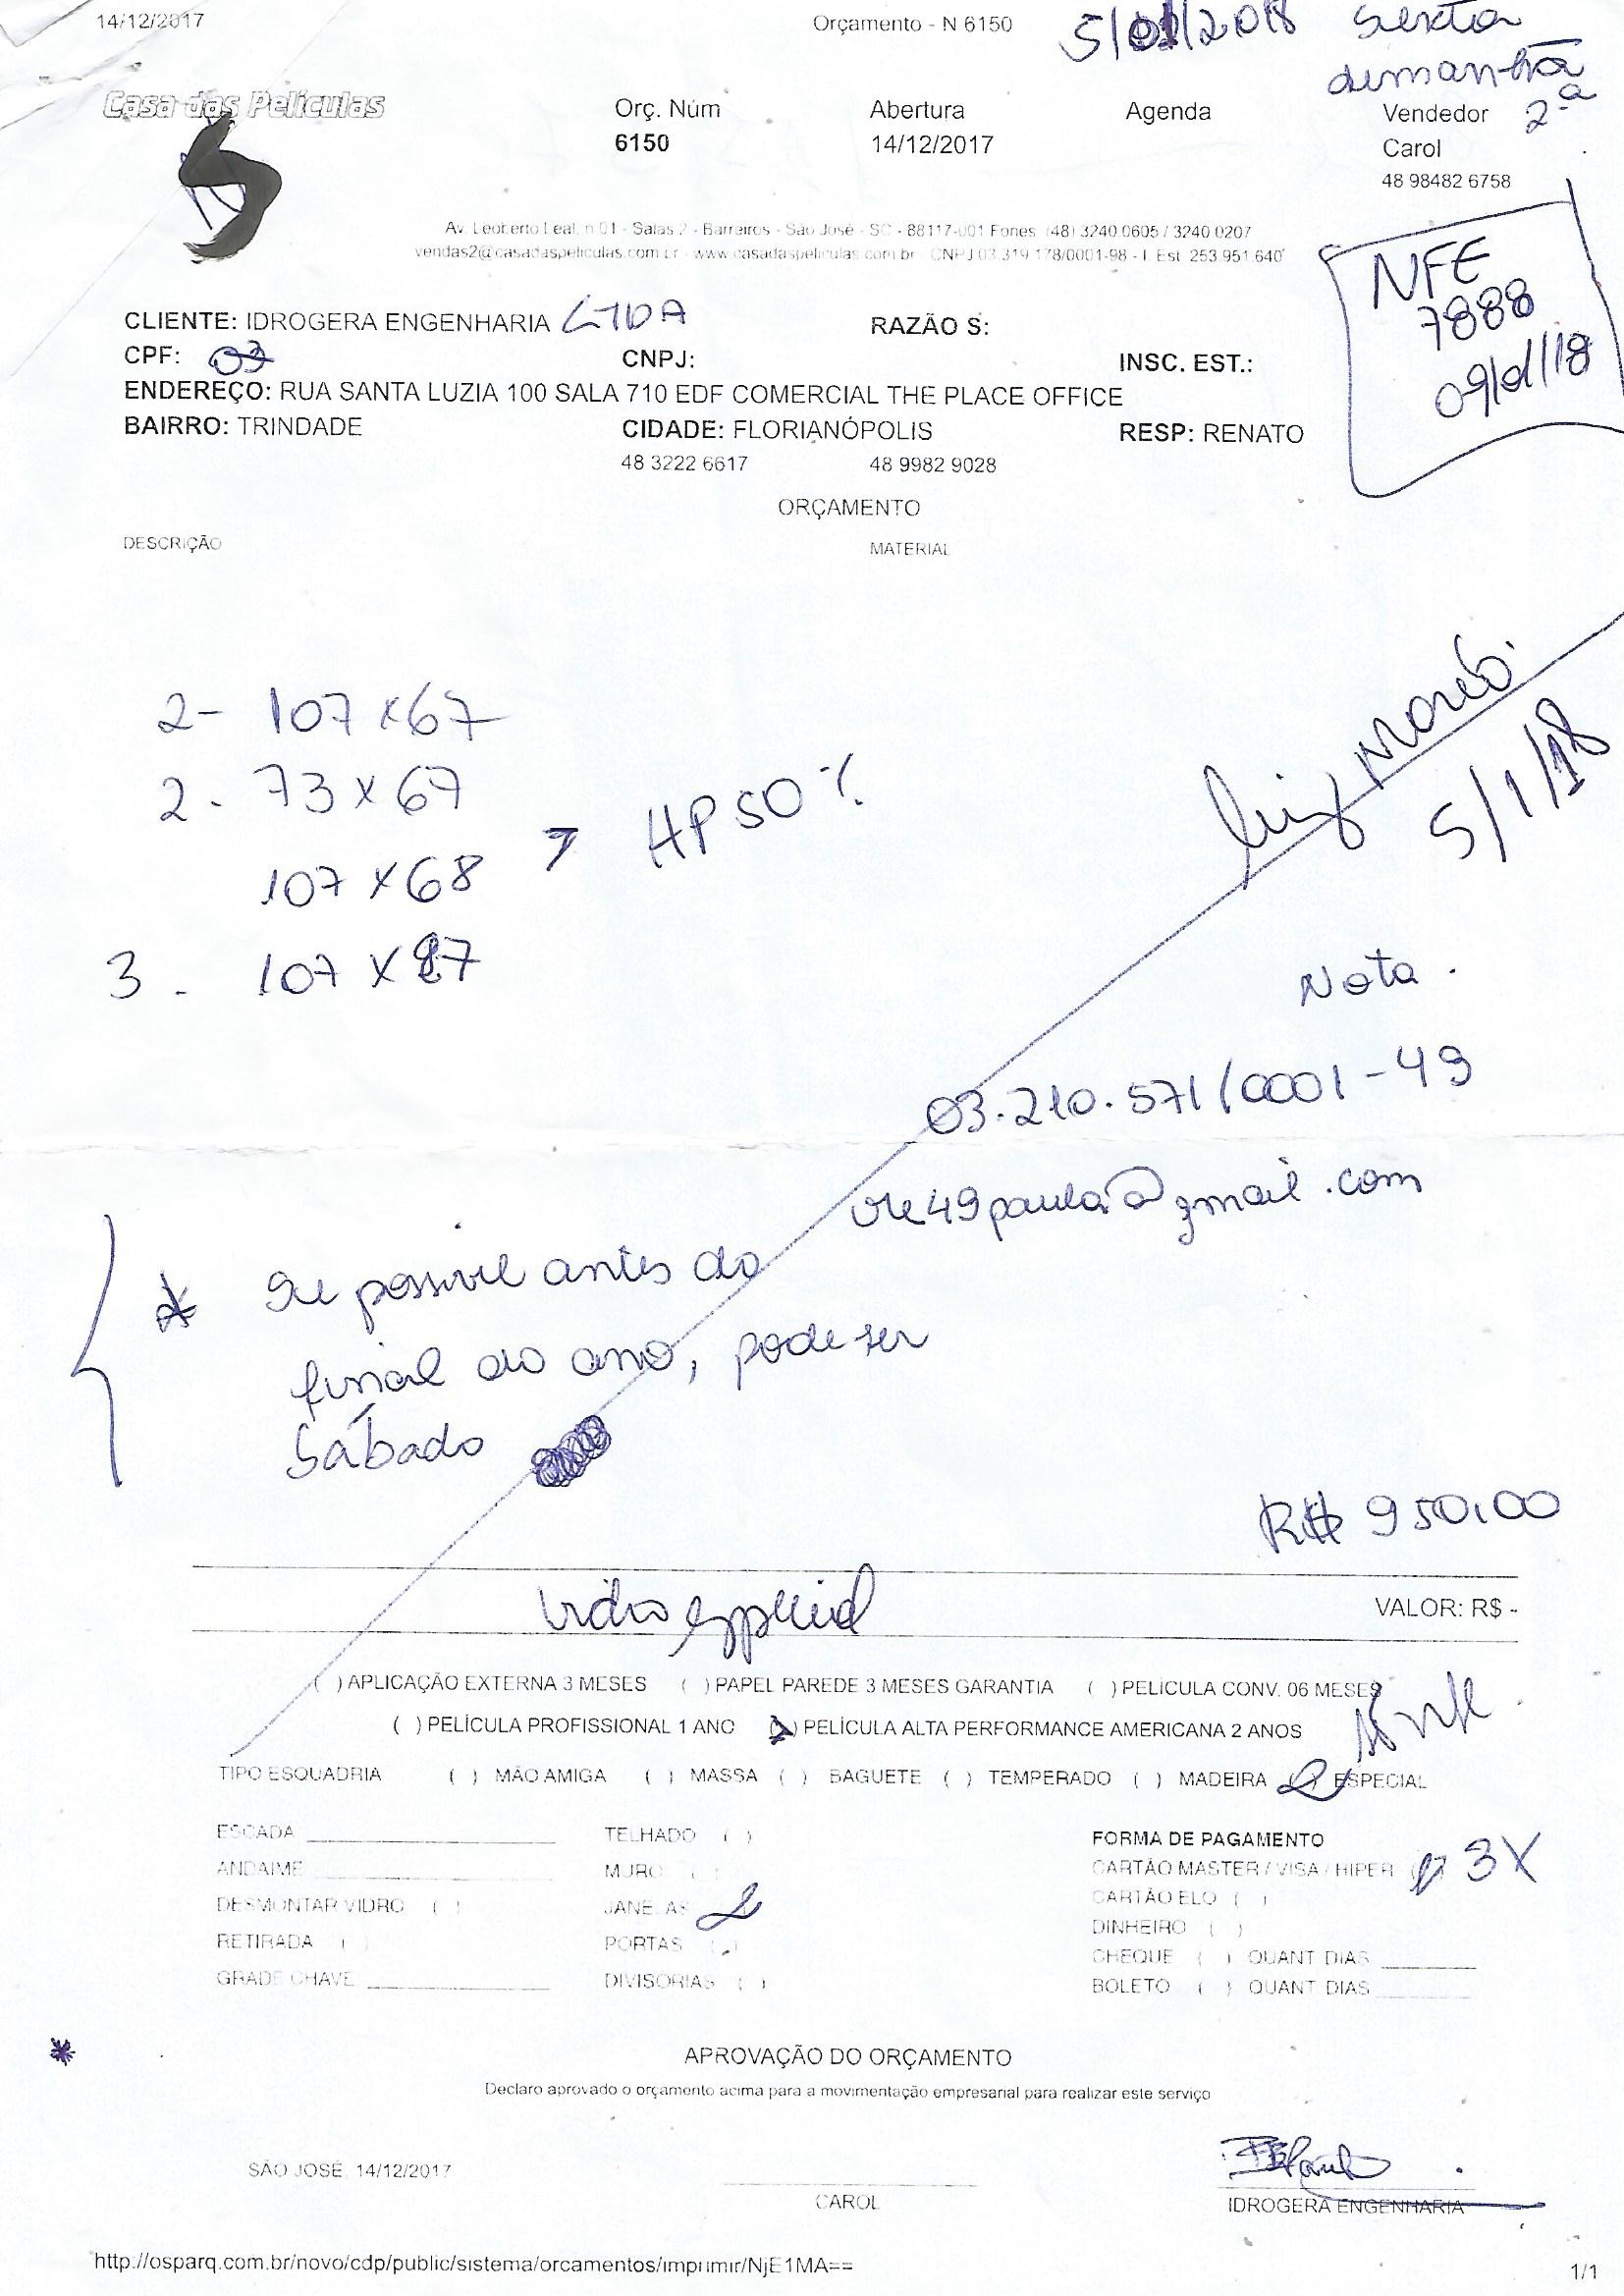 14/12/2017
Orçamento - N 6150
5/01/2018 sexta
de manhã
2ª
Casa das Películas
Orç. Núm
Abertura
Agenda
Vendedor
6150
14/12/2017
Carol
48 98482 6758
5
Av. Leoberto Leal, n 01 - Salas 2 - Barreiros - São José - SC - 88117-001 Fones: (48) 3240 0605 / 3240 0207
vendas2@casadaspeliculas.com.br - www.casadaspeliculas.com.br - CNPJ 03.319.178/0001-98 - I. Est. 253.951.640
NFE
7888
09/01/18
CLIENTE: IDROGERA ENGENHARIA LTDA
RAZÃO S:
CPF: 03
CNPJ:
INSC. EST.:
ENDEREÇO: RUA SANTA LUZIA 100 SALA 710 EDF COMERCIAL THE PLACE OFFICE
BAIRRO: TRINDADE
CIDADE: FLORIANÓPOLIS
RESP: RENATO
48 3222 6617
48 9982 9028
ORÇAMENTO
DESCRIÇÃO
MATERIAL
2- 107 x 67
2- 73 x 67
107 x 68
HP 50%
3 - 107 x 87
5/1/18
Nota.
03.210.571/0001-49
49paula@gmail.com
* Se possivel antes do
final do ano, pode ser
Sábado
R$ 950,00
vidro especial
VALOR: R$ -
( ) APLICAÇÃO EXTERNA 3 MESES ( ) PAPEL PAREDE 3 MESES GARANTIA ( ) PELÍCULA CONV. 06 MESES
( ) PELÍCULA PROFISSIONAL 1 ANO ( ) PELÍCULA ALTA PERFORMANCE AMERICANA 2 ANOS
TIPO ESQUADRIA ( ) MÃO AMIGA ( ) MASSA ( ) BAGUETE ( ) TEMPERADO ( ) MADEIRA ( ) ESPECIAL
ESCADA
TELHADO ( )
FORMA DE PAGAMENTO
ANDAIME
MURO ( )
CARTÃO MASTER / VISA / HIPER ( ) 3X
DESMONTAR VIDRO ( )
JANELAS
CARTÃO ELO ( )
RETIRADA ( )
PORTAS ( )
DINHEIRO ( )
GRADE CHAVE
DIVISORIAS ( )
CHEQUE ( ) QUANT DIAS
BOLETO ( ) QUANT DIAS
*
APROVAÇÃO DO ORÇAMENTO
Declaro aprovado o orçamento acima para a movimentação empresarial para realizar este serviço
SÃO JOSÉ, 14/12/2017
CAROL
IDROGERA ENGENHARIA
http://osparq.com.br/novo/cdp/public/sistema/orcamentos/imprimir/NjE1MA==
1/1